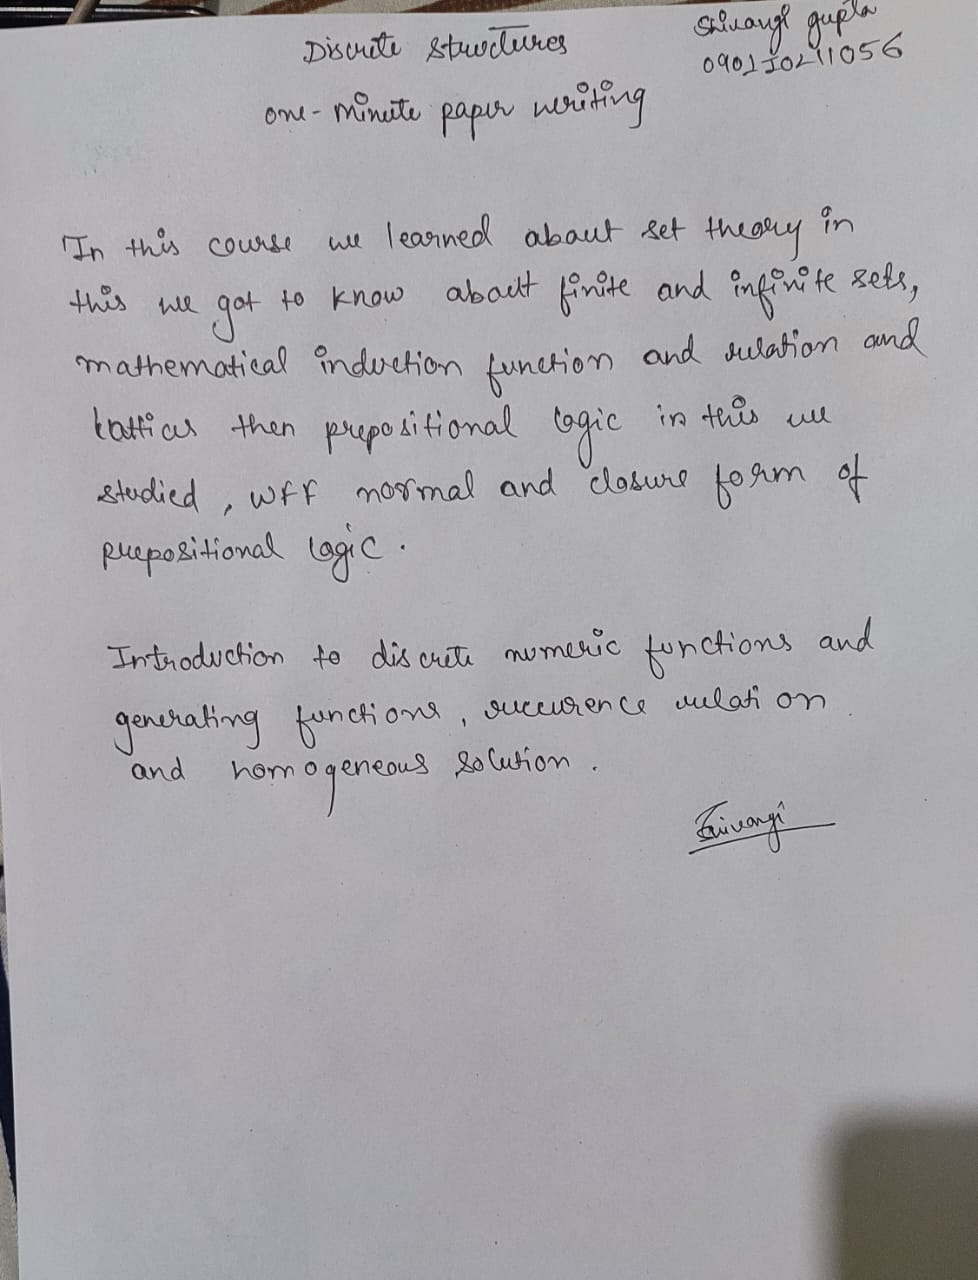 Discrete Structures
Shivangi gupta
one-minute paper writing
In this course we learned about set theory in
this we got to know about finite and infinite sets,
mathematical induction function and relation and
lattices then prepositional logic in this we
studied, wff normal and closure form of
prepositional logic.
Introduction to discrete numeric functions and
generating functions, reccurence relation
and homogeneous solution.
Shivangi